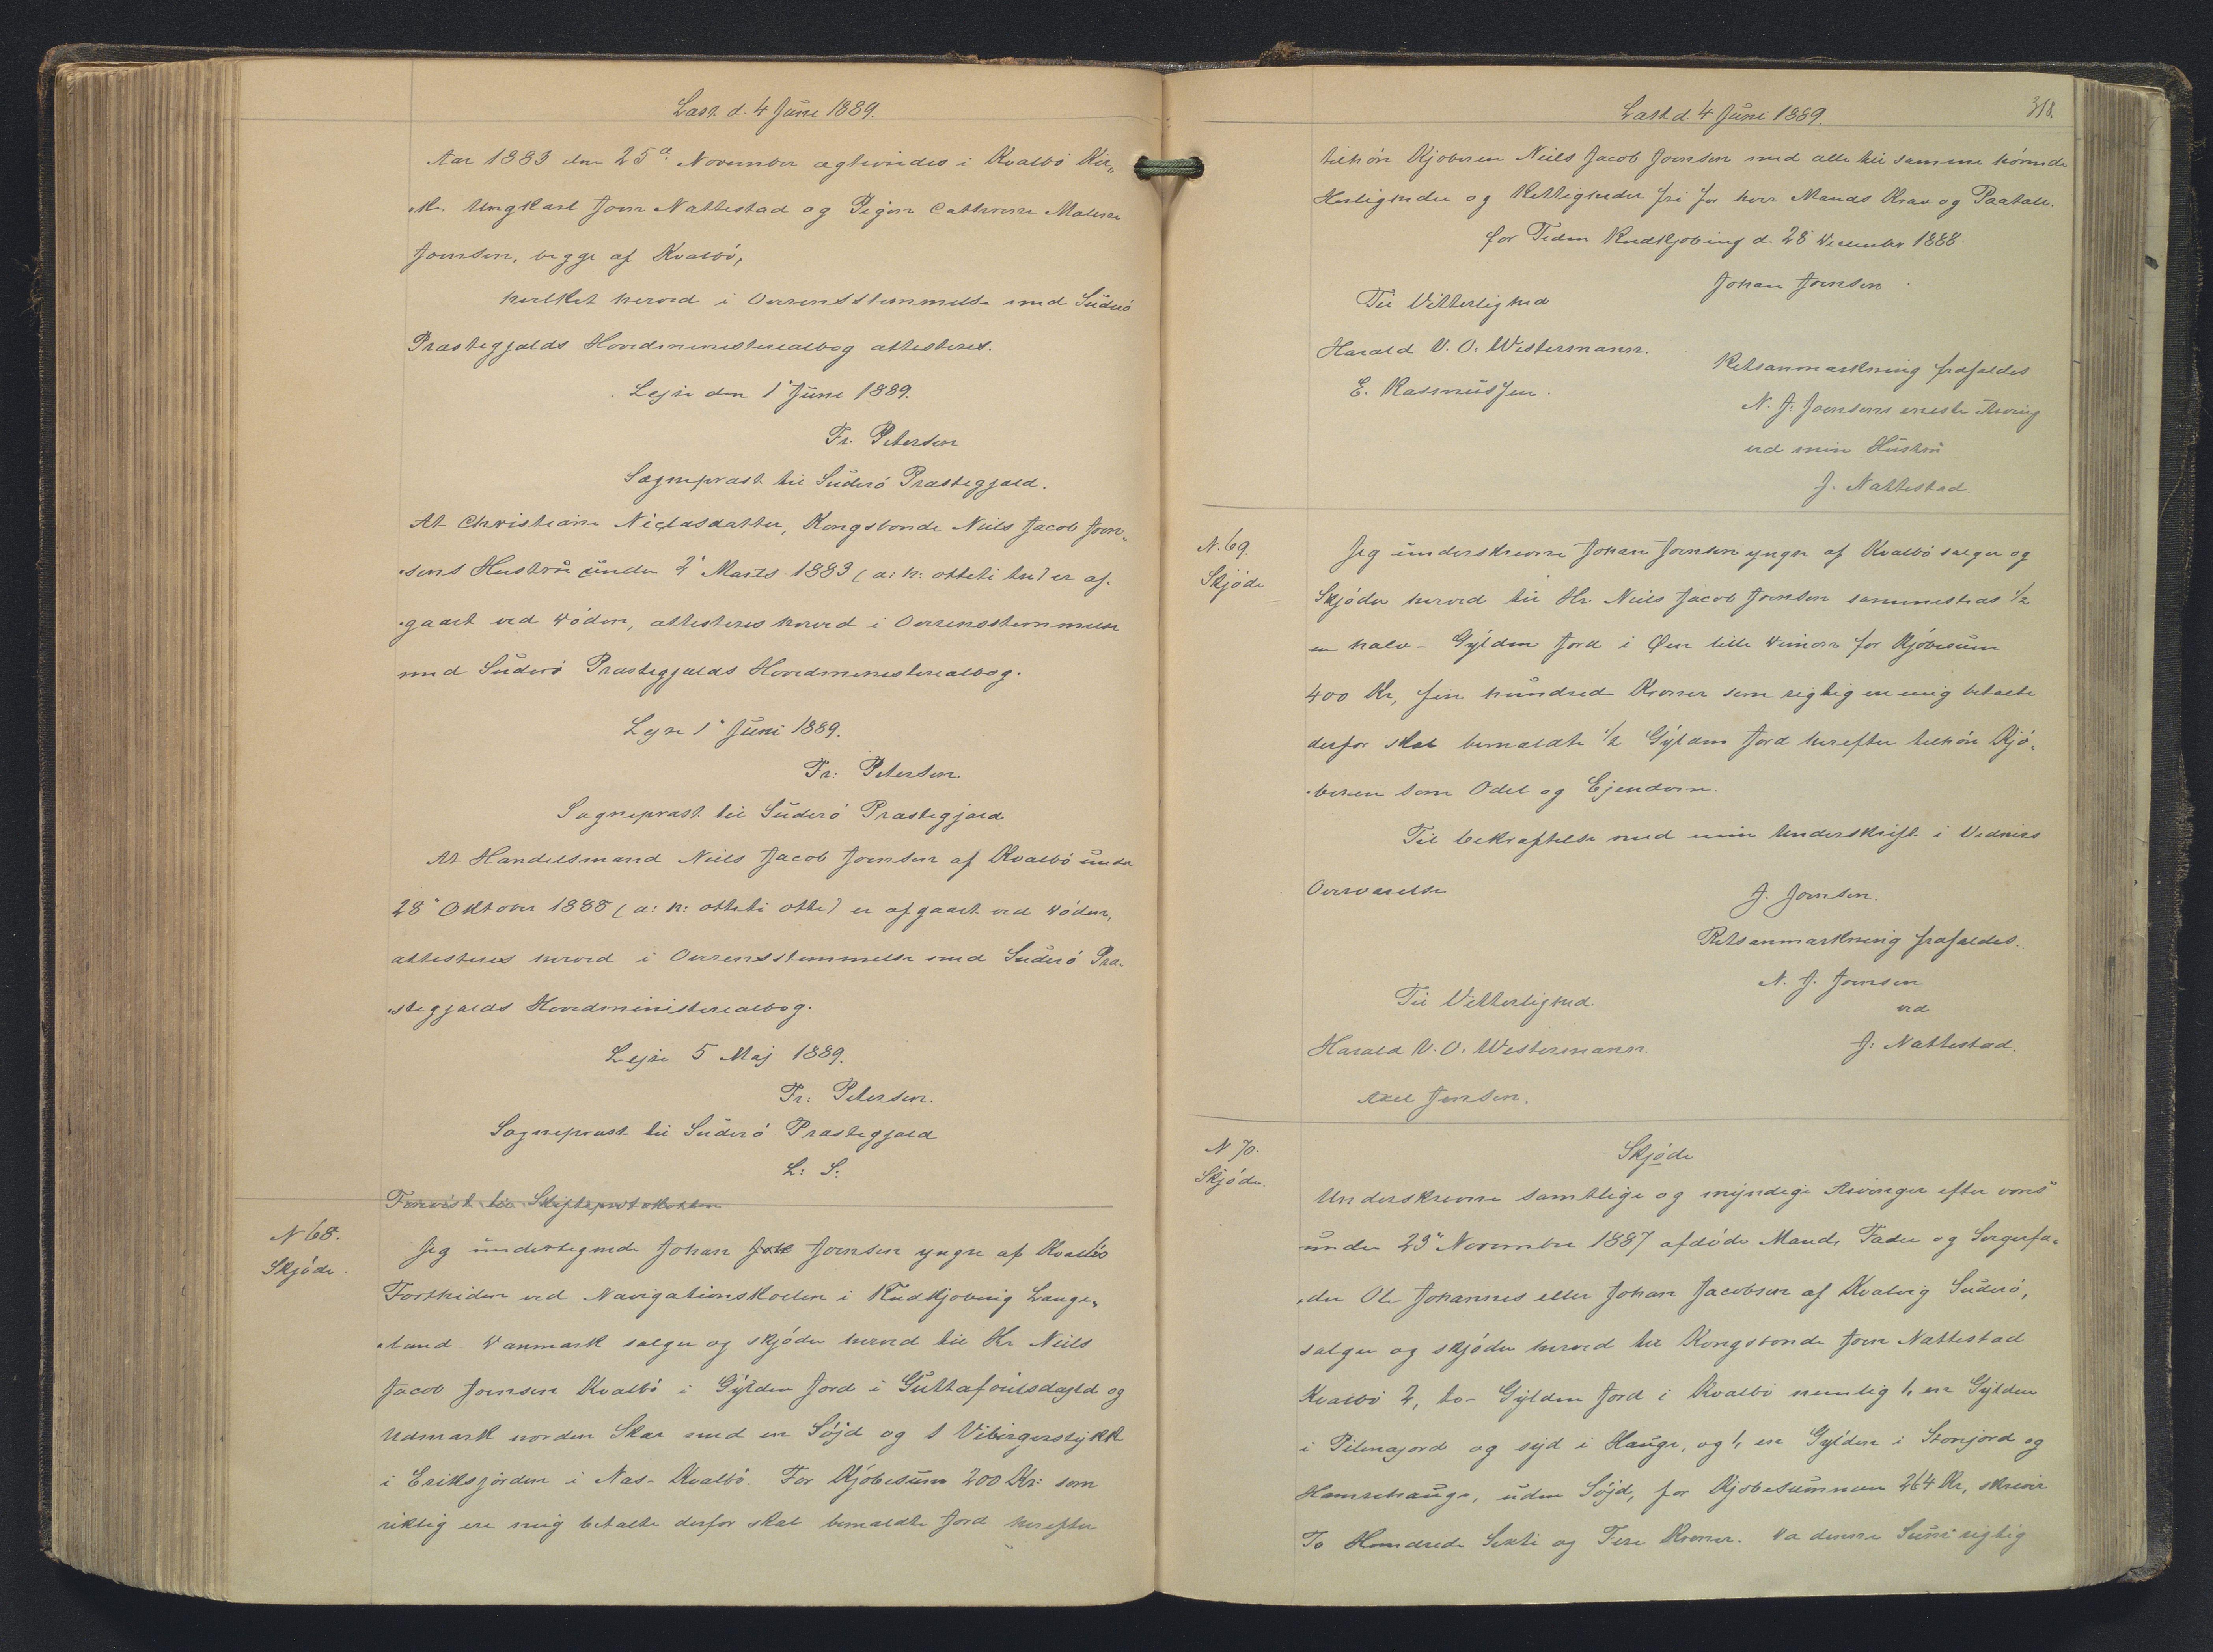 Læst d. 4 Juni 1889.
Aar 1883 den 25d. November ægteviedes i Kvalbö Kir„
„ke Ungkarl Joen Nattestad og Pigen Cathrine Malene
Joensen, begge af Kvalbö,
hvilket herved i Overensstemmelse med Süderö
Præstegjælds Hovedministerialbog attesteres.
Lejre den 1' Juni 1889.
Fr. Petersen
Sognepræst til Süderö Præstegjæld.
At Christiane Niclasdatter, Kongsbonde Niels Jacob Joen„
„sens Hustrü ünder 2' Marts 1883 (a: h: otteti tre) er af„
„gaaet ved Döden, attesteres herved i Overensstemmelse
med Süderö Præstegjælds Hovedministerialbog.
Lejre 1' Juni 1889.
Fr: Petersen.
Sognepræst til Süderö Præstegjæld
At Handelsmand Niels Jacob Joensen af Kvalbö ünder
28' Oktober 1888 (a: h: otteti otte) er afgaaet ved Döden,
attesteres herved i Overensstemmelse med Süderö Præ„
„stegjælds Hovedministerialbog.
Lejre 5 Maj 1889.
Fr: Petersen.
Sognepræst til Süderö Præstegjæld
L: S:
Forevist til Skifteprotokollen
N 68.
Skjöde.
Jeg ündertegnede Johan Joensen yngre af Kvalbö
Fortiden ved Navigationskolen i Rudkjobing Lange„
„land Danmark sælger og skjöder herved til Hr Niels
Jacob Joensen Kvalbö i Gÿlden Jord i og
Udmark norden Skar med en Söjd og 1
i Eriksjörden i Næs-Kvalbö. For Kjöbesüm 200 Kr: som
riktig ere mig betalte derfor skal bemældte Jord herefter
Læst d. 4 Jüni 1889.
318.
tilhöre Kjoberen Niels Jacob Joensen med alle til samme hörende
Herligheder og Rettigheder fri for hver Mands Krav og Paatale.
for Tiden Rudkjobing d. 28 December 1888.
Johan Joensen
Til Vitterlighed
Harald V. O. Westermann.
E. Rasmussen.
Retsanmærkning frafaldes
N. J. Joensens eneste Arving
ved min Hüstrü
J. Nattestad.
N. 69.
Skjöde
Jeg ünderskrevne Johan Joensen yngre af Kvalbö sælger og
Skjöder herved til Hr. Niels Jacob Joensen sammesteds 1/2
en halv - Gÿlden Jord i Øen lille Dimon for Kjöbesüm
400 Kr, fire hündrede Kroner som rigtig ere mig betalte
derfor skal bemældte 1/2 Gÿlden Jord herefter tilhöre Kjö„
„beren som Odel og Ejendom.
Til bekræftelse med min Underskrift i Vidners
Overværelse
J. Joensen.
Retsanmærkning frafaldes.
N. J. Joensen
ved
J: Nattestad.
Til Vitterlighed.
Harald V. O. Westermann.
Axel Jensen.
N 70.
Skjöde.
Skjöde
Underskrevne samtlige og mÿndige Arvinger efter vores
ünder 29' November 1887 afdöde Mand, Fader og Svigerfa„
„der Ole Johannes eller Johan Jacobsen af Kvalvig Süderö,
sælger og skjöder herved til Kongsbonde Joen Nattestad
Kvalbö 2, to- Gÿlden Jord i Kvalbö nemlig 1, en Gÿlden
i og sÿd i Hauge, og 1, en Gÿlden i Storijord og
Hamrehauge, uden Söjd, for Kjobesümmen 264 Kr, skriver
To Hundrede Sexti og Fire Kroner. Da denne Süm rigtig